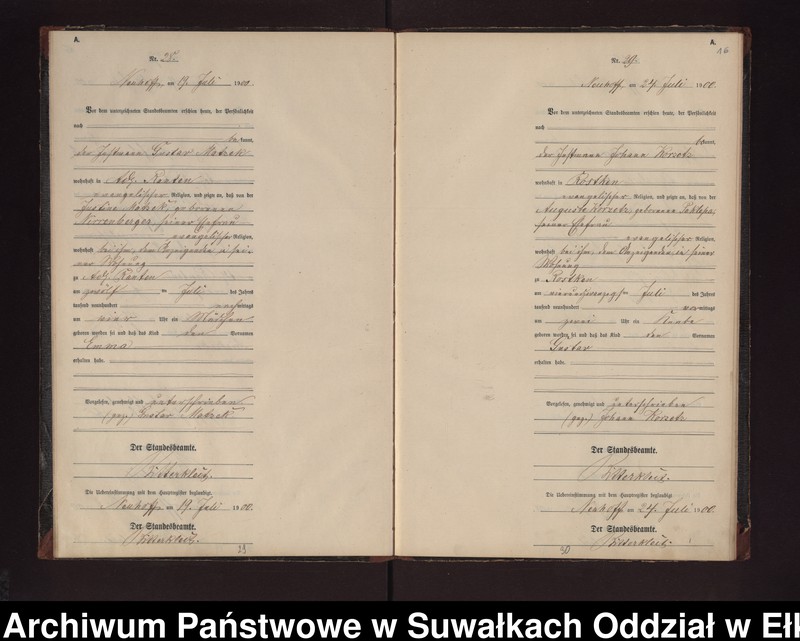 A.
Nr. 28.
Neuhoff am 19. Juli 1900.
Vor dem unterzeichneten Standesbeamten erschien heute, der Persönlichkeit
nach
bekannt,
der Gustav Matzek
wohnhaft in Adl. Kanten
evangelischer Religion, und zeigte an, daß von der
Justine Matzek, geborenen
seiner Ehefrau
evangelischer Religion,
wohnhaft bei ihm, dem Anzeigenden, in sei-
ner Wohnung
zu Adl. Kanten
am zwölf ten Juli des Jahres
tausend neunhundert nachmittags
um Uhr ein Mädchen
geboren worden sei und daß das Kind den Vornamen
Emma
erhalten habe.
Vorgelesen, genehmigt und unterschrieben
(gez.) Gustav Matzek
Der Standesbeamte.
Die Uebereinstimmung mit dem Hauptregister beglaubigt.
Neuhoff am 19. Juli 1900.
Der Standesbeamte.
A.
16
Nr. 29.
Neuhoff am 24. Juli 1900.
Vor dem unterzeichneten Standesbeamten erschien heute, der Persönlichkeit
nach
bekannt,
der Johann Korsetz
wohnhaft in Rostken
evangelischer Religion, und zeigte an, daß von der
Auguste Korsetz, geborenen
seiner Ehefrau
evangelischer Religion,
wohnhaft bei ihm, dem Anzeigenden, in seiner
Wohnung
zu Rostken
am vierundzwanzigsten Juli des Jahres
tausend neunhundert vormittags
um zwei Uhr ein Knabe
geboren worden sei und daß das Kind den Vornamen
Gustav
erhalten habe.
Vorgelesen, genehmigt und unterschrieben
(gez.) Johann Korsetz
Der Standesbeamte.
Die Uebereinstimmung mit dem Hauptregister beglaubigt.
Neuhoff am 24. Juli 1900.
Der Standesbeamte.
Archiwum Państwowe w Suwałkach Oddział w Eł